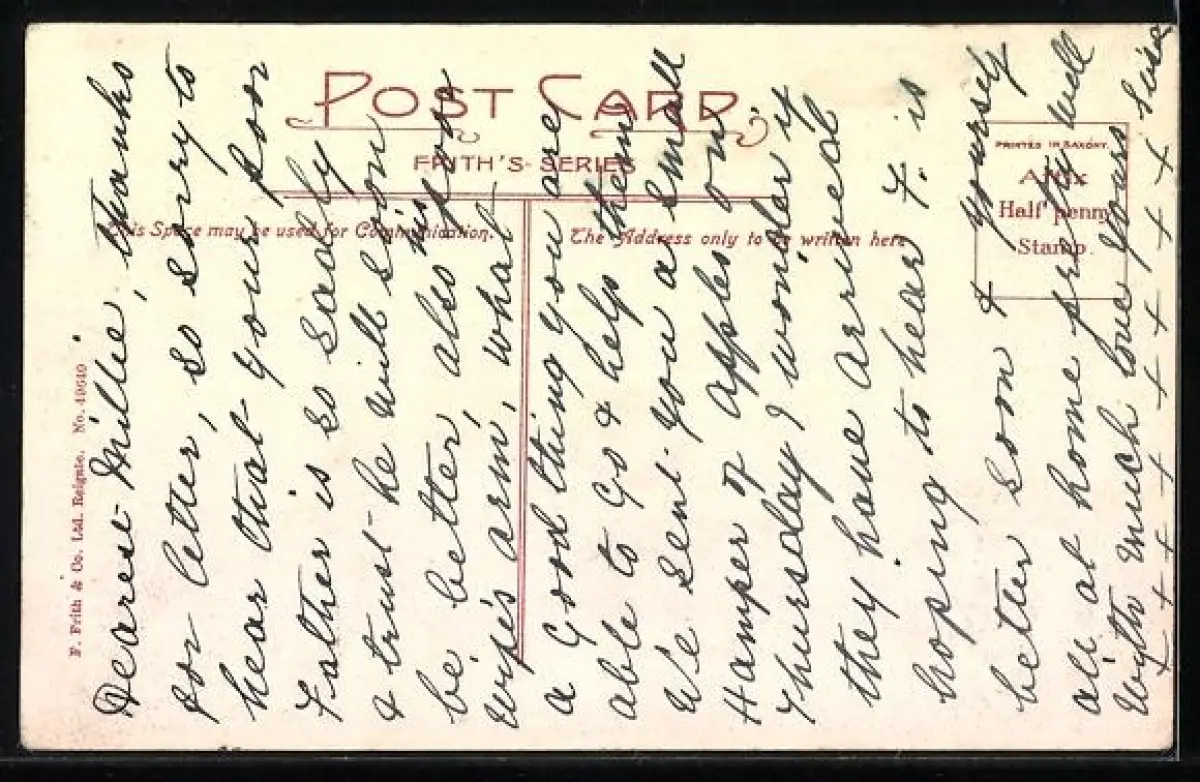 POST CARD
FRITH'S SERIES
This Space may be used for Communication.
The Address only to be written here
PRINTED IN SAXONY.
Affix
Half penny
Stamp.
F. Frith & Co. Ltd. Reigate. No. 49649
Dearest Millie, thanks
for letter, so sorry to
hear that your poor
Father is so sadly
& trust he will soon
be better, also his poor
wife's arm, what
a Good thing you are
able to Go & help them
We sent you a small
Hamper of apples on
Thursday I wonder if
they have arrived
hoping to hear F. is
better soon & yourself
all at home pretty well
With much love yours
+ + + + + + + + + +